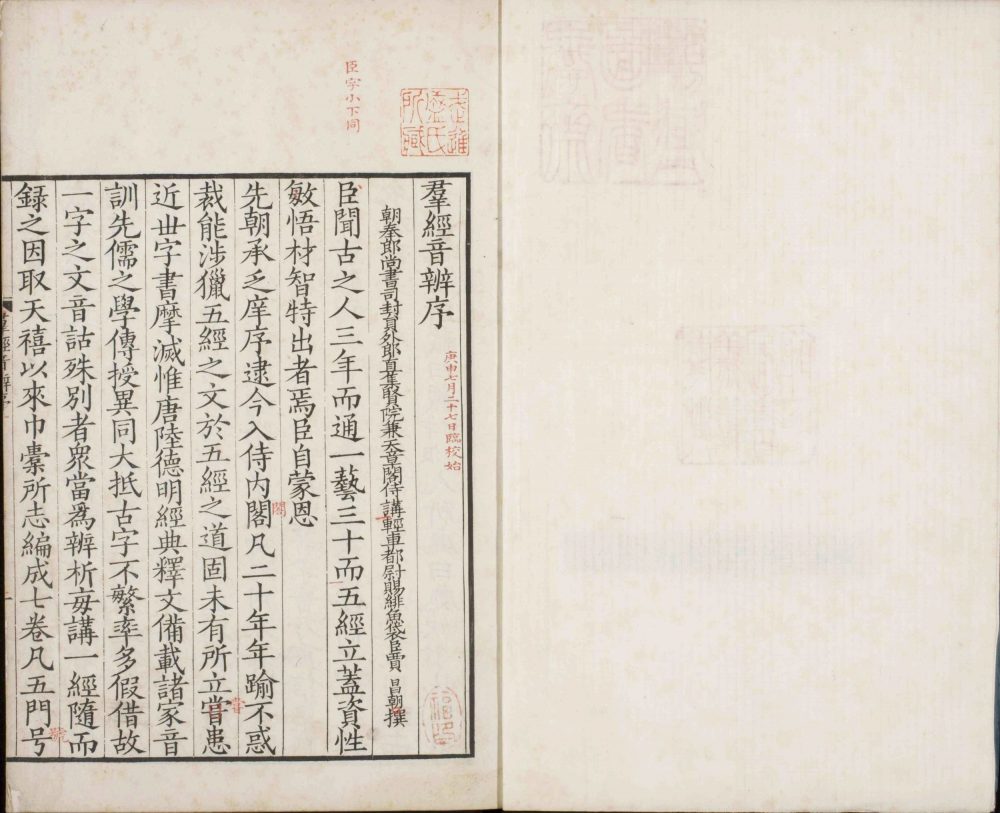 臣字小下同
羣經音辨序
庚申七月二十七日臨校始
朝奉郎尚書司封員外郎直集賢院兼天章閣侍講輕車都尉賜緋魚袋臣賈昌朝撰
臣聞古之人三年而通一藝三十而五經立蓋資性
敏悟材智特出者焉臣自蒙恩
先朝承乏庠序逮今入侍內閣凡二十年年踰不惑
閣
裁能涉獵五經之文於五經之道固未有所立甞患
常
近世字書摩滅惟唐陸德明經典釋文備載諸家音
訓先儒之學傳授異同大抵古字不繁率多假借故
一字之文音詁殊別者衆當爲辨析每講一經隨而
號
録之因取天禧以來巾橐所志編成七卷凡五門号